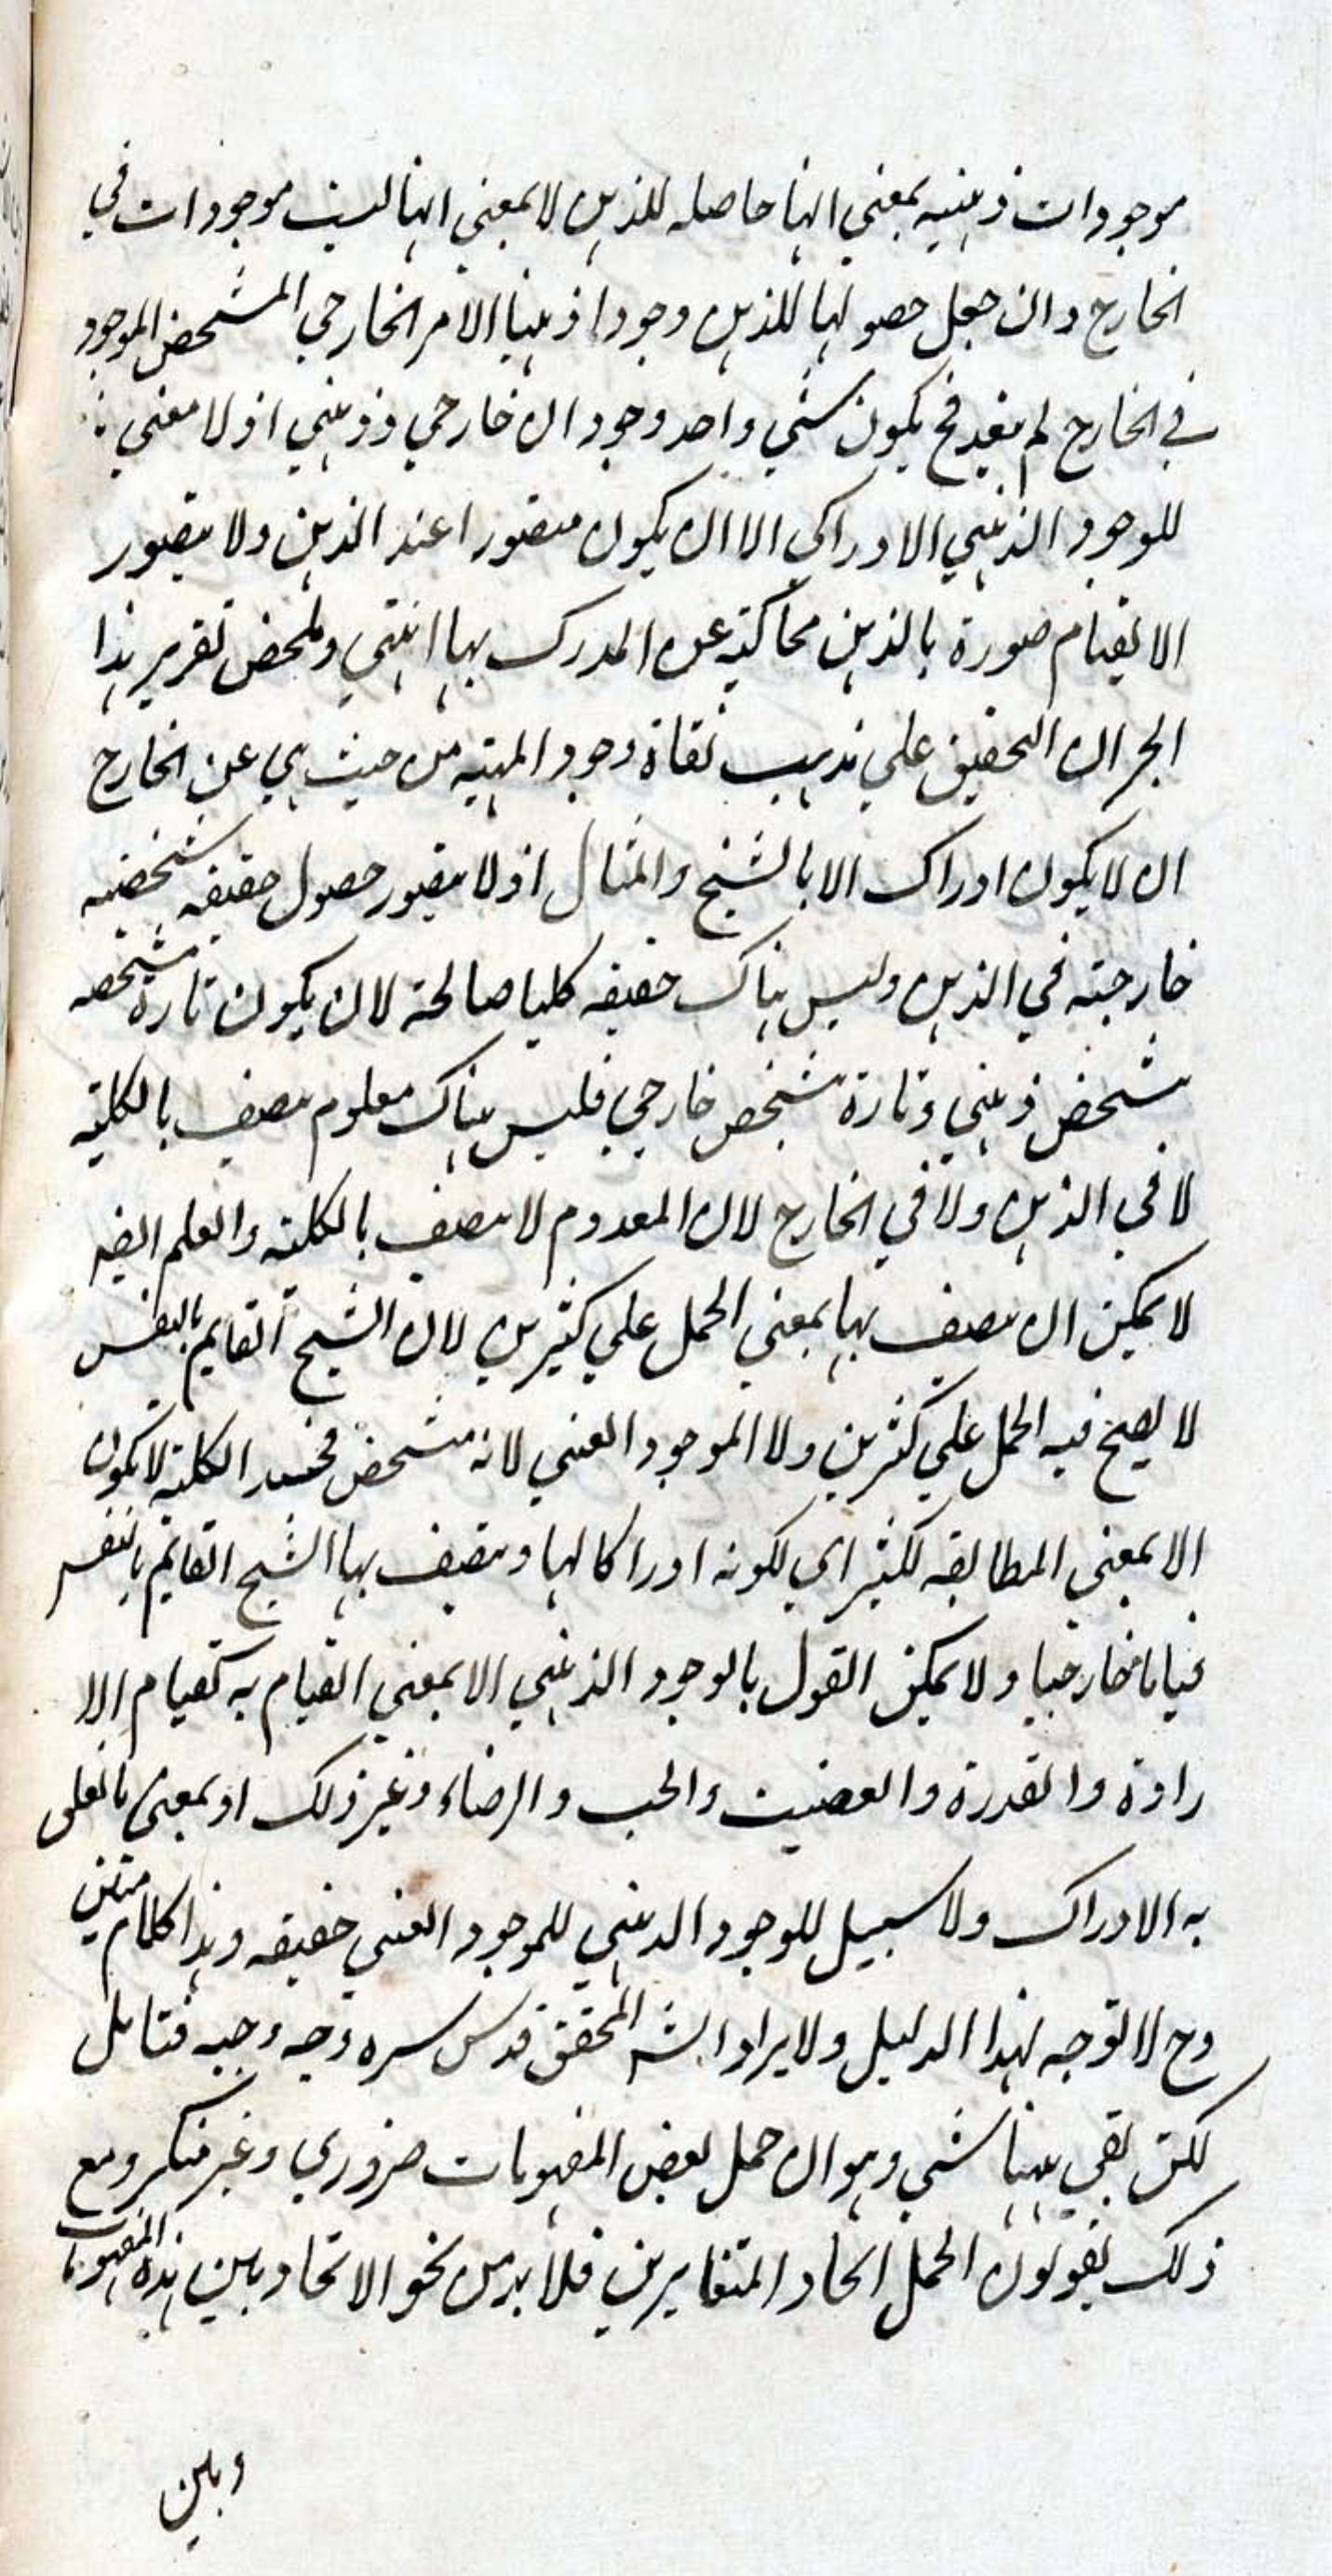 موجودات ذهنيه بمعني انها حاصله للذهن لا بمعني انها ليست موجودات في
الخارج وان جعل حصولها للذهن وجودا ذهنيا الامر الخارجي المشخص الموجود
في الخارج لم يبعد فح يكون شي واحد وجودان خارجي وذهني اذ لا معني
للوجود الذهني الادراكي الا ان يكون متصورا عند الذهن ولا يتصور
الا بقيام صورة بالذهن محاكية عن المدرك بها انتهي وملخص تقرير هذا
ان التحقيق علي مذهب نفاة وجود المهية من حيث هي عن الخارج
ان لا يكون ادراك الا بالشبح والمثال اذ لا يتصور حصول حقيقه شخصيه
خارجيه في الذهن وليس هناك حقيقه كليا صالحة لان يكون تارة متشخصه
بتشخص ذهني وتارة بتشخص خارجي فليس هناك معلوم متصف بالكليه
لا في الذهن ولا في الخارج لان المعدوم لا يتصف بالكليه والعلم ايضا
لا يمكن ان يتصف بها بمعني الحمل علي كثيرين لان الشبح القايم بالنفس
لا يصح فيه الحمل علي كثيرين ولا الموجود العيني لانه متشخص الكلية لا يكون
الا بمعني المطابقه لكثير اي لكونه ادراكا لها ويتصف بها الشبح القايم بالنفس
قياما خارجيا ولا يمكن القول بالوجود الذهني الا بمعني القيام به كقيام الا
رادة والقدرة والغضب والحب والرضاء وغير ذلك او بمعني ما تعلق
به الادراك ولا سبيل للوجود الذهني للموجود العيني حقيقه وهذا كلام متين
وح لا توجه لهذا الدليل ولايراد الشه المحقق قدس سره وجه وجيه فتامل
لكن بقي ههنا شي وهو ان حمل بعض المفهومات ضروري وغير منكر ومع
ذلك يقولون الحمل اتحاد المتغايرين فلا بد من نحو الاتحاد بين هذه المفهومات
وبين